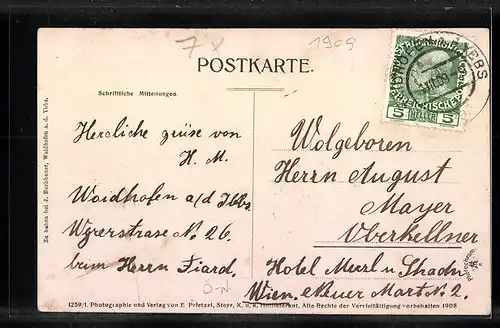 7 x
1909
POSTKARTE.
YBBS
5 HELLER 5
Schriftliche Mitteilungen.
Herzliche grüse von
H. M.
Waidhofen a/d Ibbs
Wyrerstrase No 26.
beim Herrn Fiard.
Ö-N
Wolgeboren
Herrn August
Mayer
Oberkellner
Hotel Meerl u Shadn
Wien. Neuer Mart N. 2.
Zu haben bei J. Buchbauer, Waidhofen a. d. Ybbs.
1259/1. Photographie und Verlag von E. Prietzel, Steyr, K. u. k. Hoflieferant. Alle Rechte der Vervielfältigung vorbehalten 1908